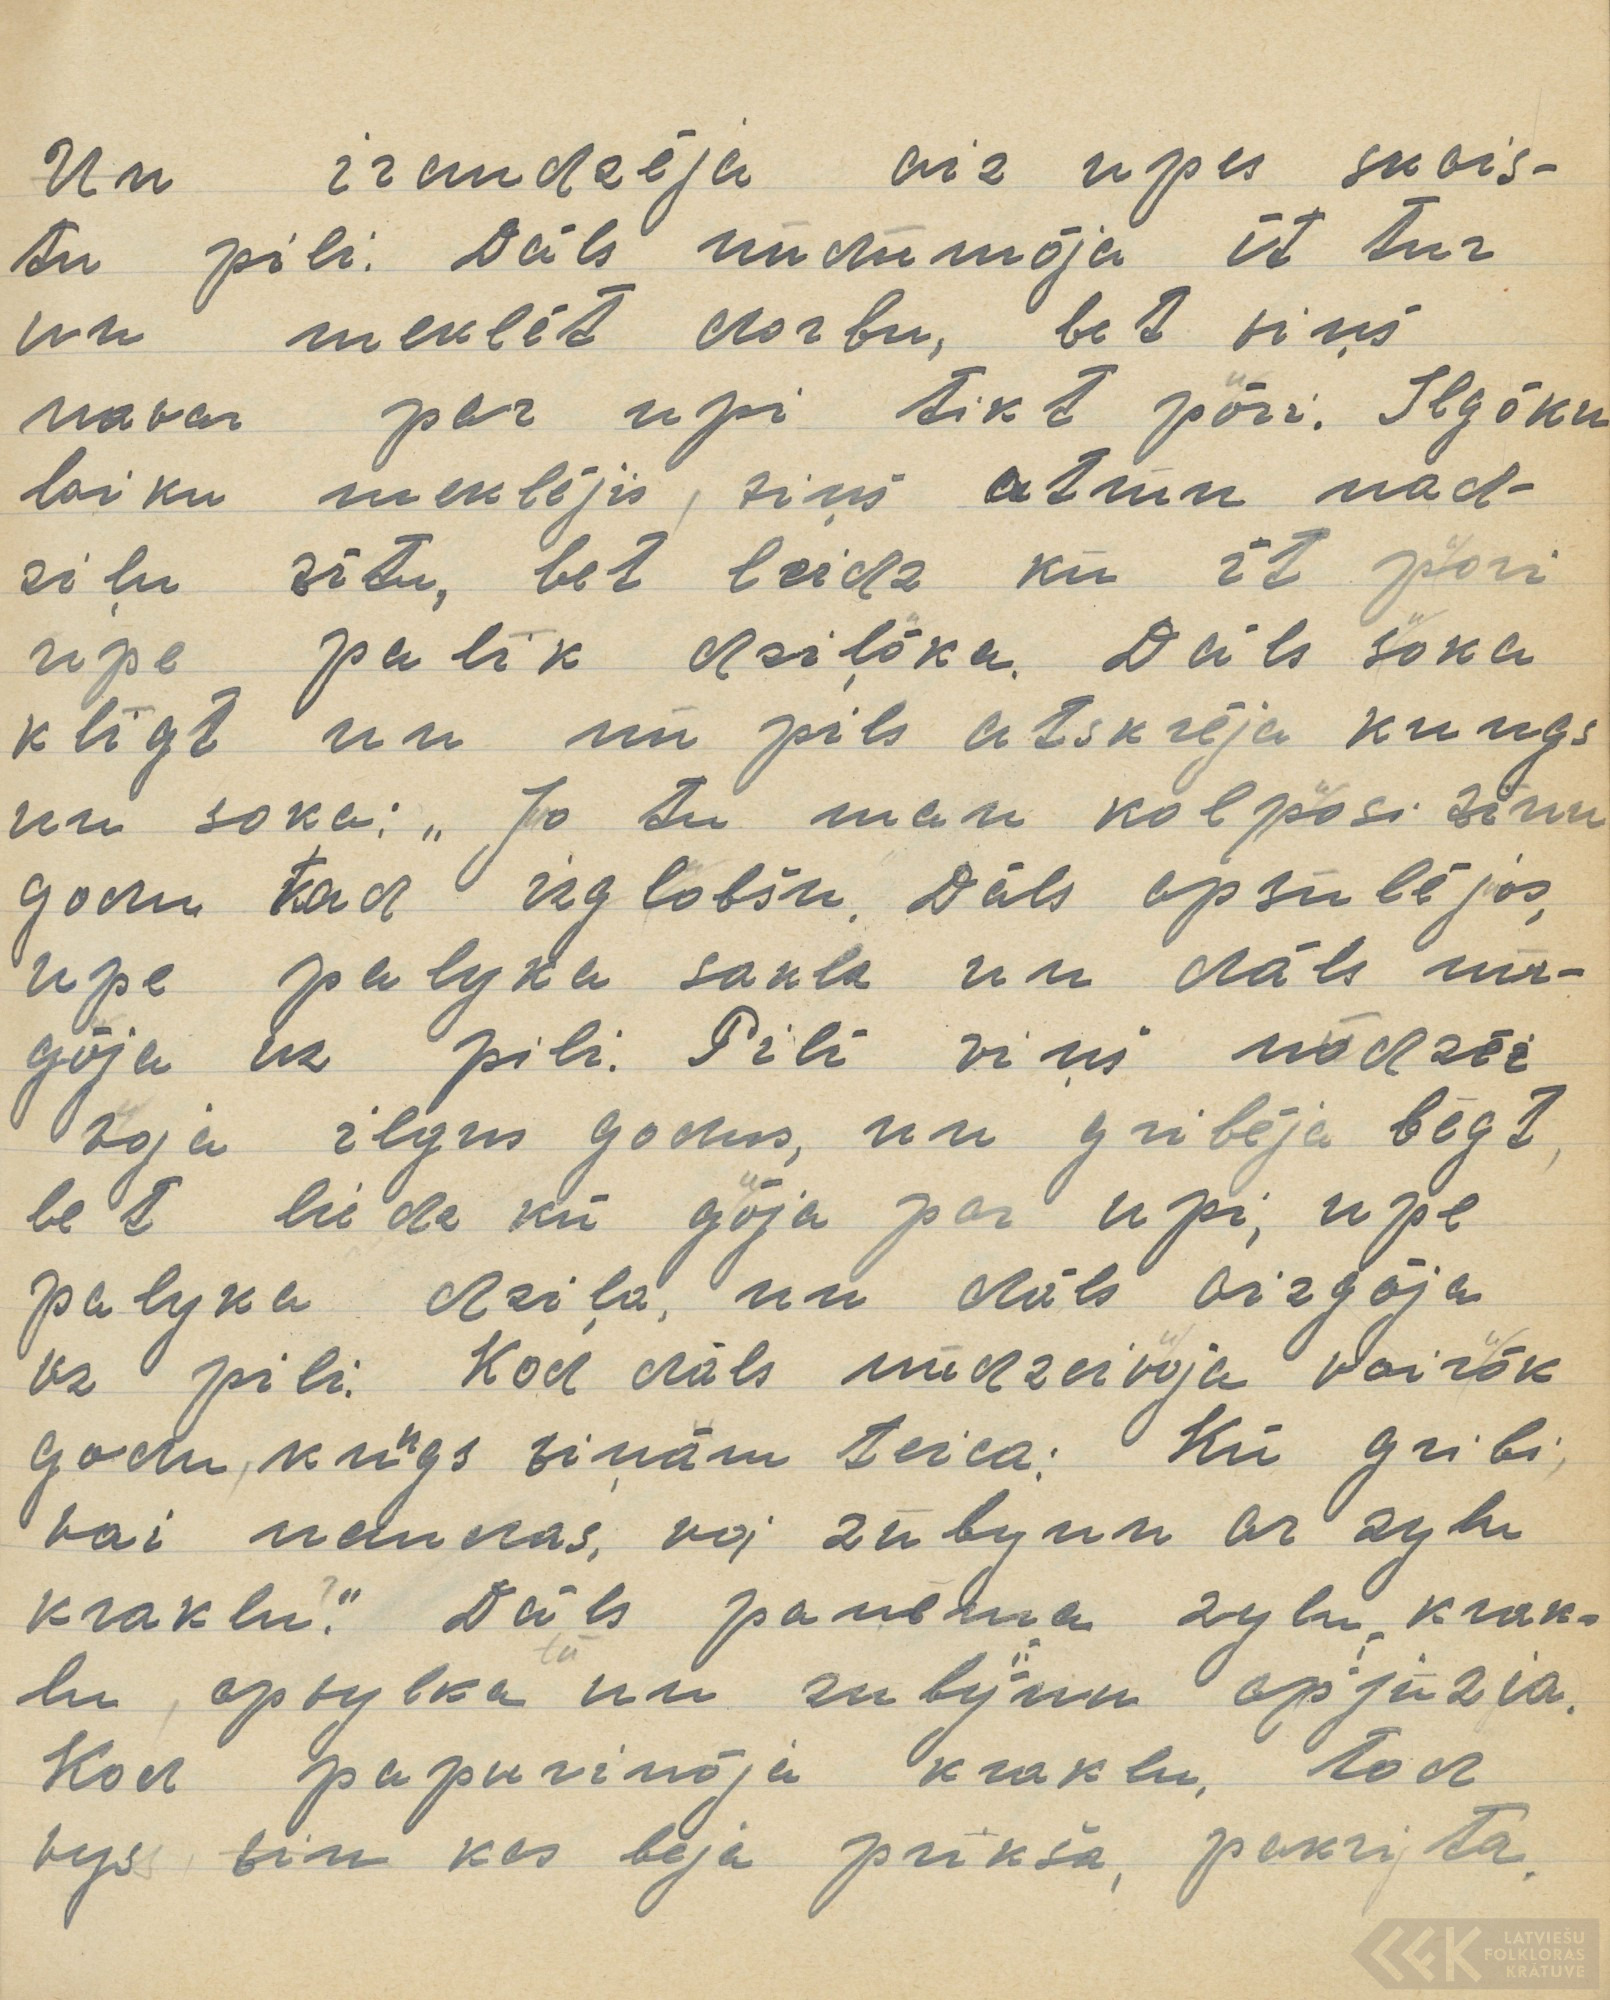 Un iraudzēja aiz upes skais-
tu pili. Dāls nūdūmōja īt tur
un meklēt dorbu, bet viņš
navar par upi tikt pōri. Ilgōku
laiku meklējis, viņš atrūn nad-
ziļu vītu, bet leidz kū īt pōri
upe palīk dziļōka. Dāls sōka
kligt un nū pils atskrēja kungs
un soka: „Jo tu man kolpōsi vīnu
godu tad izglōbšu. Dāls apsūlējos,
upe palyka sakla un dāls nū-
gōja uz pili. Pilī viņš nōdzēi
vōja ilgus godus, un gribēja bēgt,
bet liedz kū gōja par upi, upe
palyka dziļa, un dāls aizgōja
uz pili. Kod dāls nūdzeivōja vairōk
godu, kūgs viņām teica: Kū gribi,
vai naudas, voj zūbynu ar zylu
kraklu?." Dāls panēma zylu, krak-
lu, apvylka tū un zubynu apjūzia.
Kod papurinōja kraklu, tod
vyss vin kas beja prīkšā, pakrita.
LATVIEŠU
FOLKLORAS
KRĀTUVE